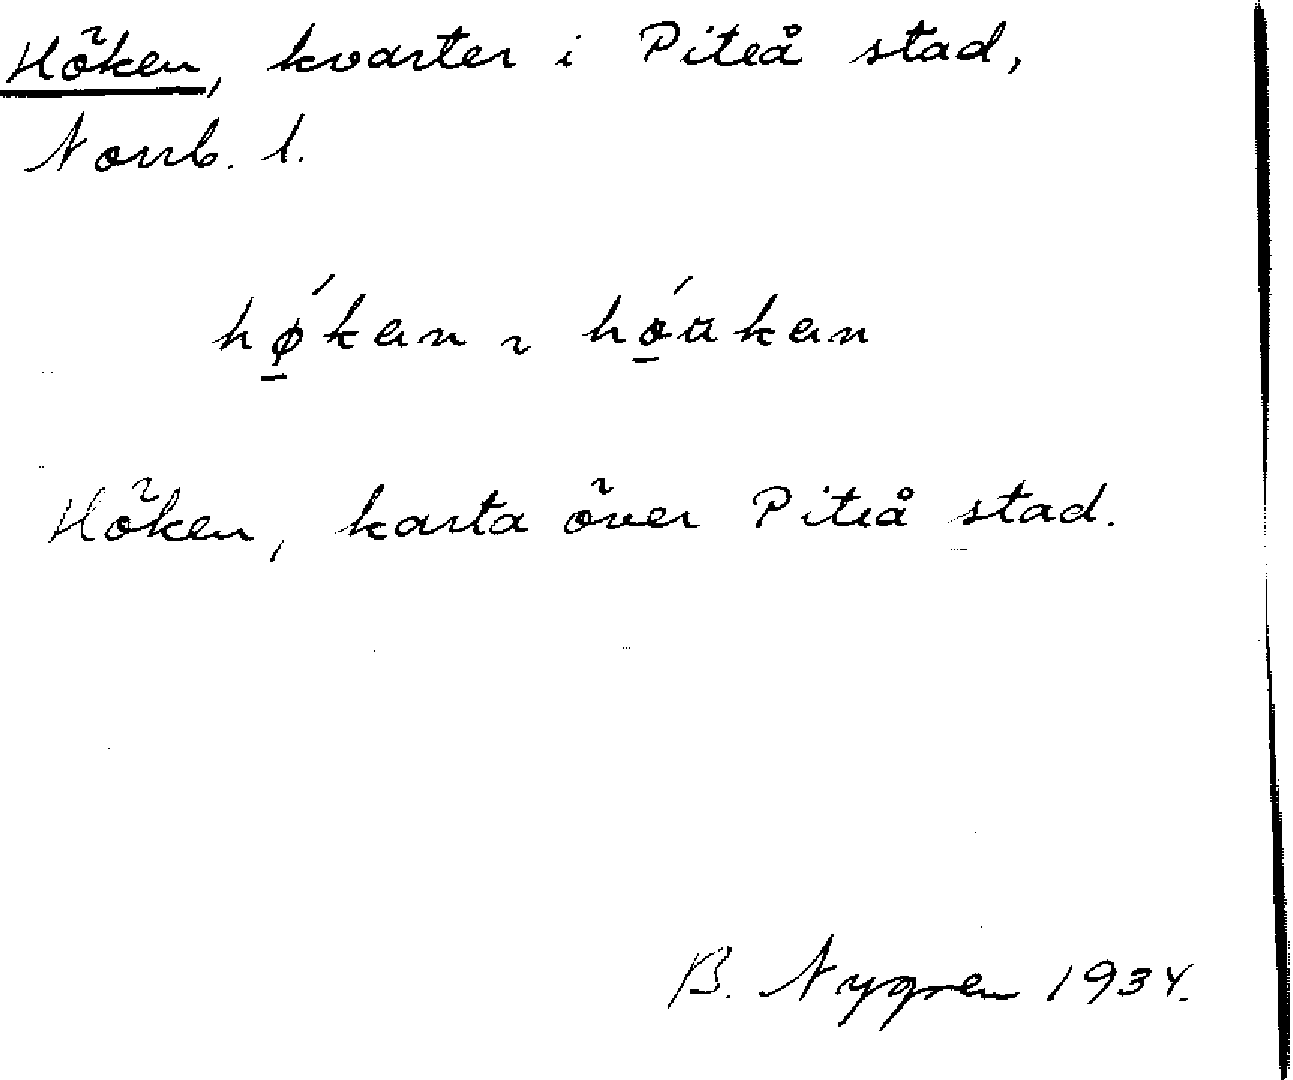 Höken, kvarter i Piteå stad,
Norrb. l.
hǿ̱ken ~ hǫ́u̇ken
Höken, karta över Piteå stad.
B. Nygren 1934.